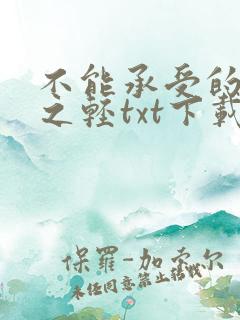 不能承受的
之轻txt下载
保罗-加索尔
未经同意禁止转载